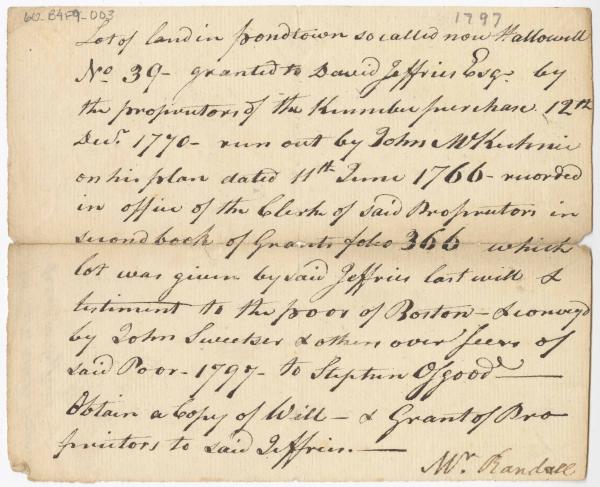 60-B4F9-003
1797
Lot of land in pondtown so called now Hallowell
No 39- granted to David Jeffries Esqr by
the propriutors of the Kennebec purchase 12th
Decr. 1770- run out by John McKechnie
on his plan dated 11th June 1766- recorded
in office of the Clerk of said Propriutors in
second book of Grants folio 366 which
lot was given by said Jeffries last will &
testiment to the poor of Boston- & convey'd
by John Sweetser & others over seers of
said Poor- 1797- to Stephen Osgood-
Obtain a Copy of Will- & Grant of Pro
priutors to said Jeffries.-
Mr. Randall